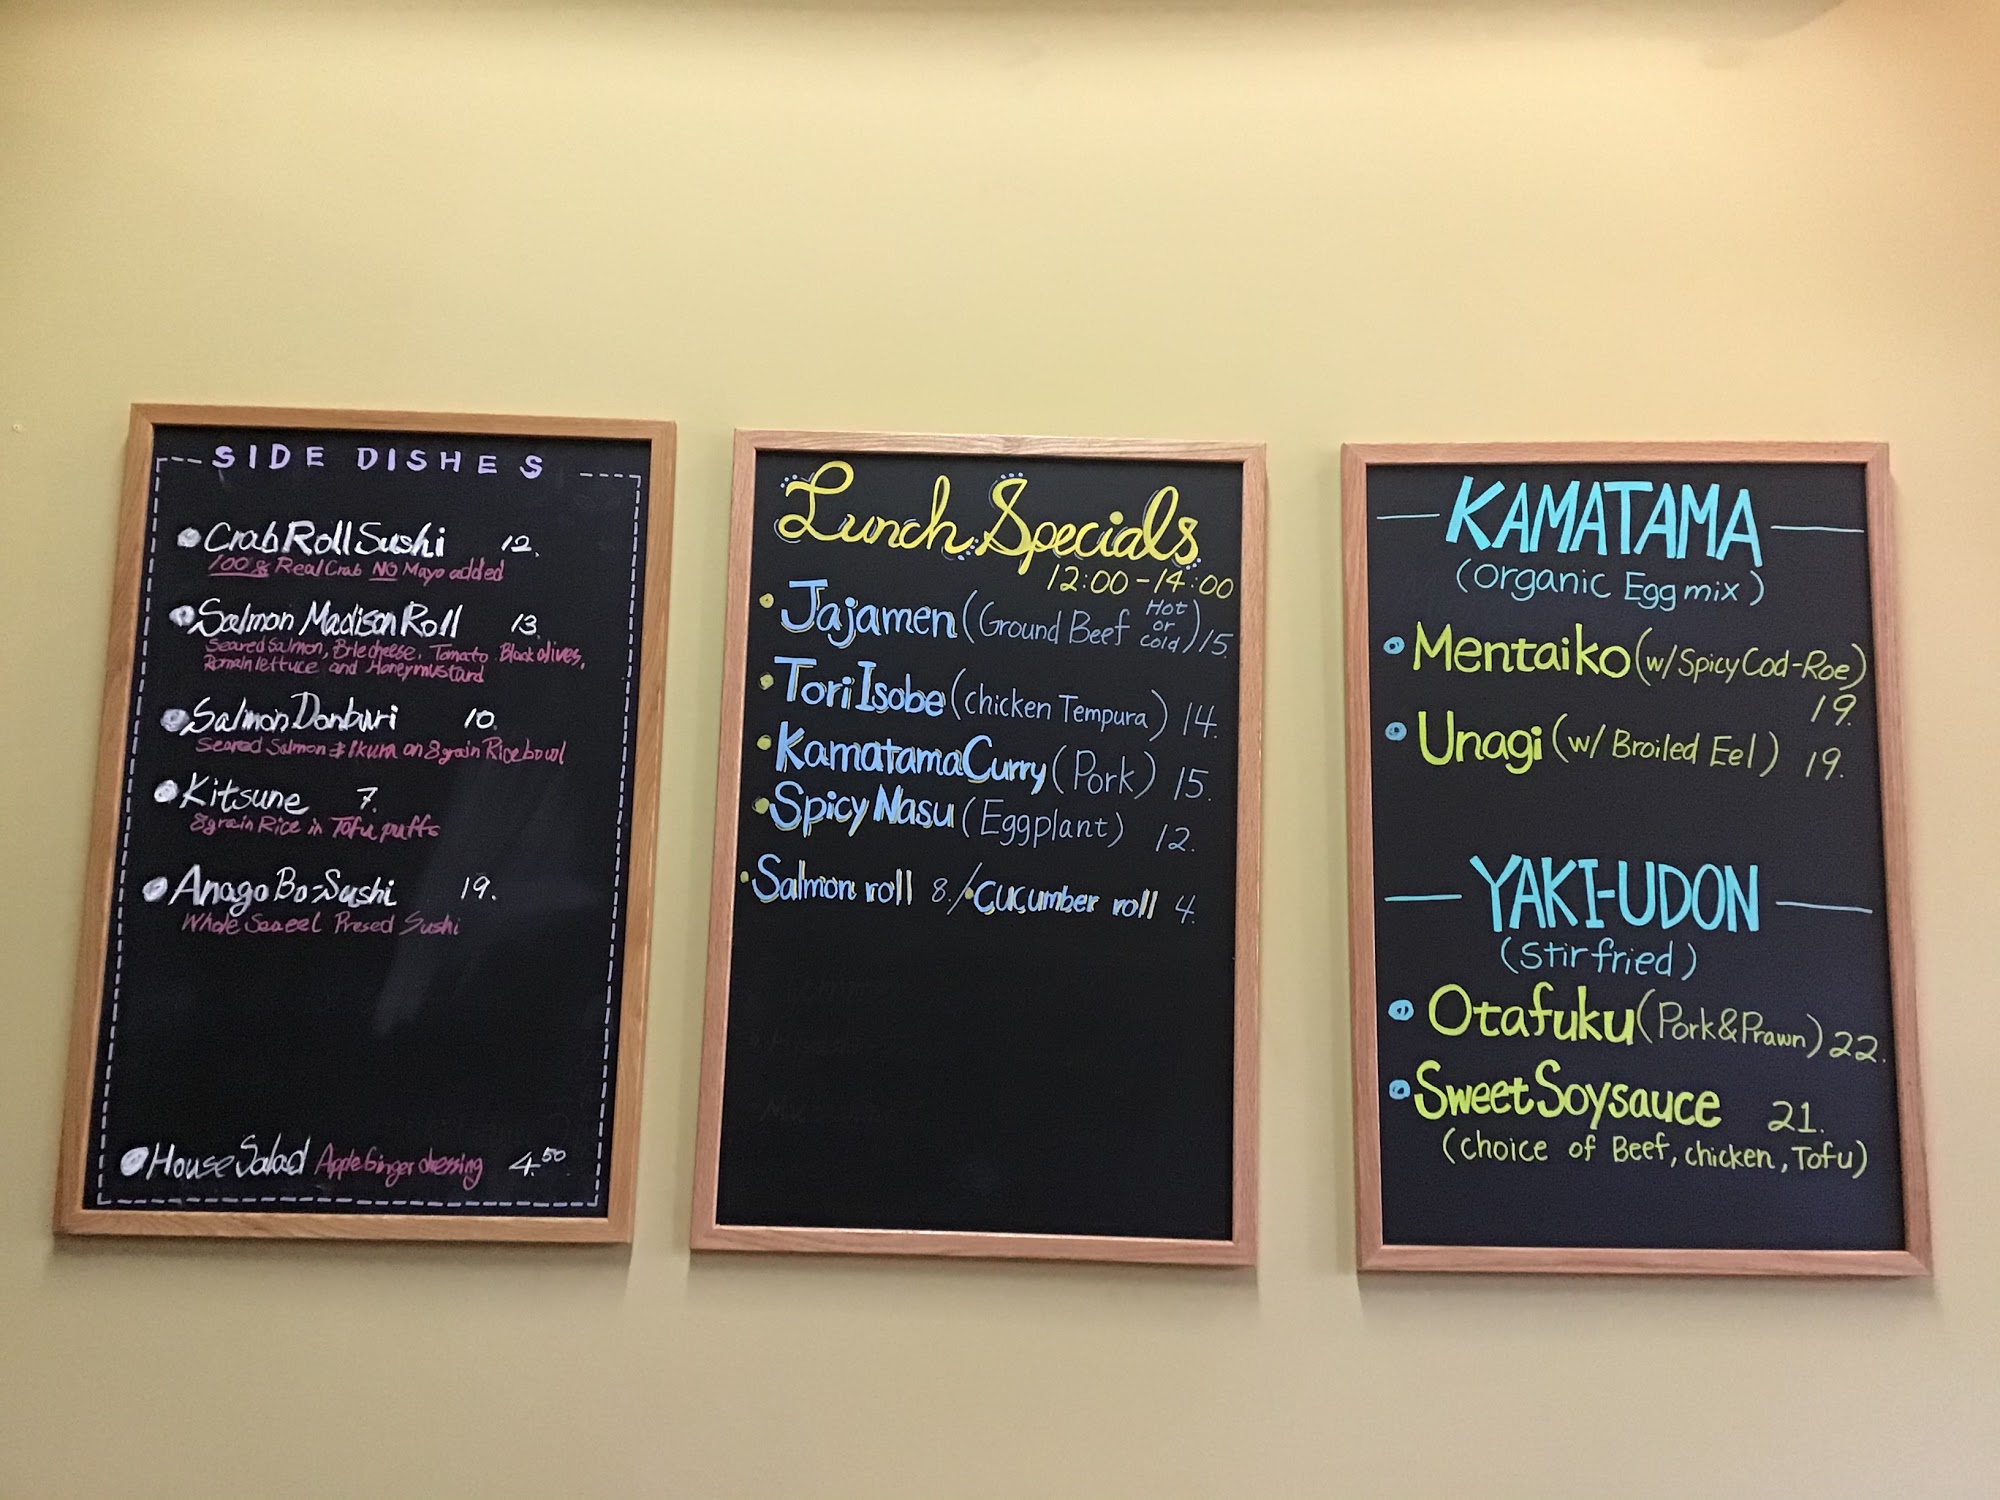 SIDE DISHES
Crab Roll Sushi 12.
100% Real Crab NO Mayo added
Salmon Madison Roll 13.
Seared Salmon, Brie cheese, Tomato Black olives,
Romain lettuce and Honey mustard
Salmon Donburi 10.
Seared Salmon & Ikura on 8 grain Rice bowl
Kitsune 7.
8 grain Rice in Tofu puffs
Anago Bo-Sushi 19.
Whole Sea eel Presed Sushi
House Salad Apple Ginger dressing 4.50
Lunch Specials
12:00-14:00
Jajamen (Ground Beef Hot or cold) 15.
Tori Isobe (chicken Tempura) 14.
Kamatama Curry (Pork) 15.
Spicy Nasu (Eggplant) 12.
Salmon roll 8. / Cucumber roll 4.
KAMATAMA
(Organic Egg mix)
Mentaiko (w/ Spicy Cod-Roe)
19.
Unagi (w/ Broiled Eel) 19.
YAKI-UDON
(Stir fried)
Otafuku (Pork & Prawn) 22.
Sweet Soysauce 21.
(choice of Beef, chicken, Tofu)